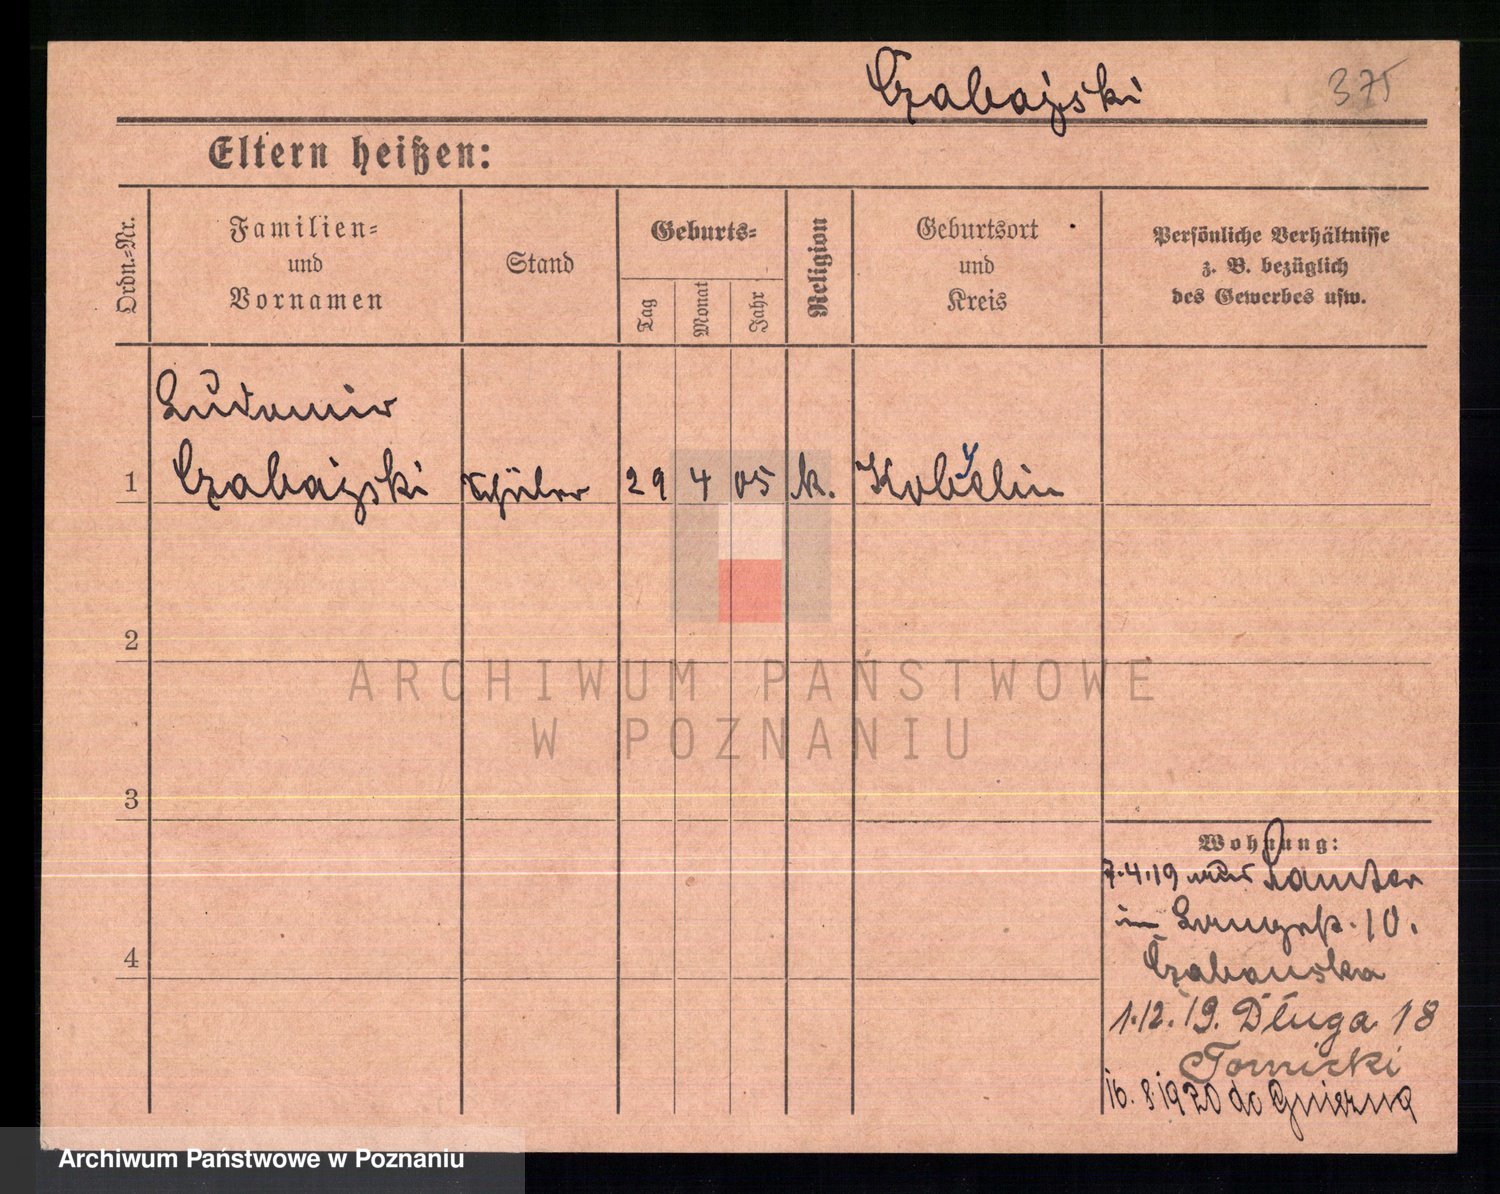 Czabajski 375
Eltern heißen:
Ordn.-Nr.
Familien=
und
Vornamen
Stand
Geburts=
Tag
Monat
Jahr
Religion
Geburtsort
und
Kreis
Persönliche Verhältnisse
z. B. bezüglich
des Gewerbes usw.
Ludomir
1 Czabajski Schüler 29 4 05 k. Kobylin
2
3
4
Wohnung:
7.4.19 aus Samter
in Langestr. 10.
1.12.19. Długa 18
Tomicki
16.8.1920 do Gniezna
ARCHIWUM PAŃSTWOWE
W POZNANIU
Archiwum Państwowe w Poznaniu